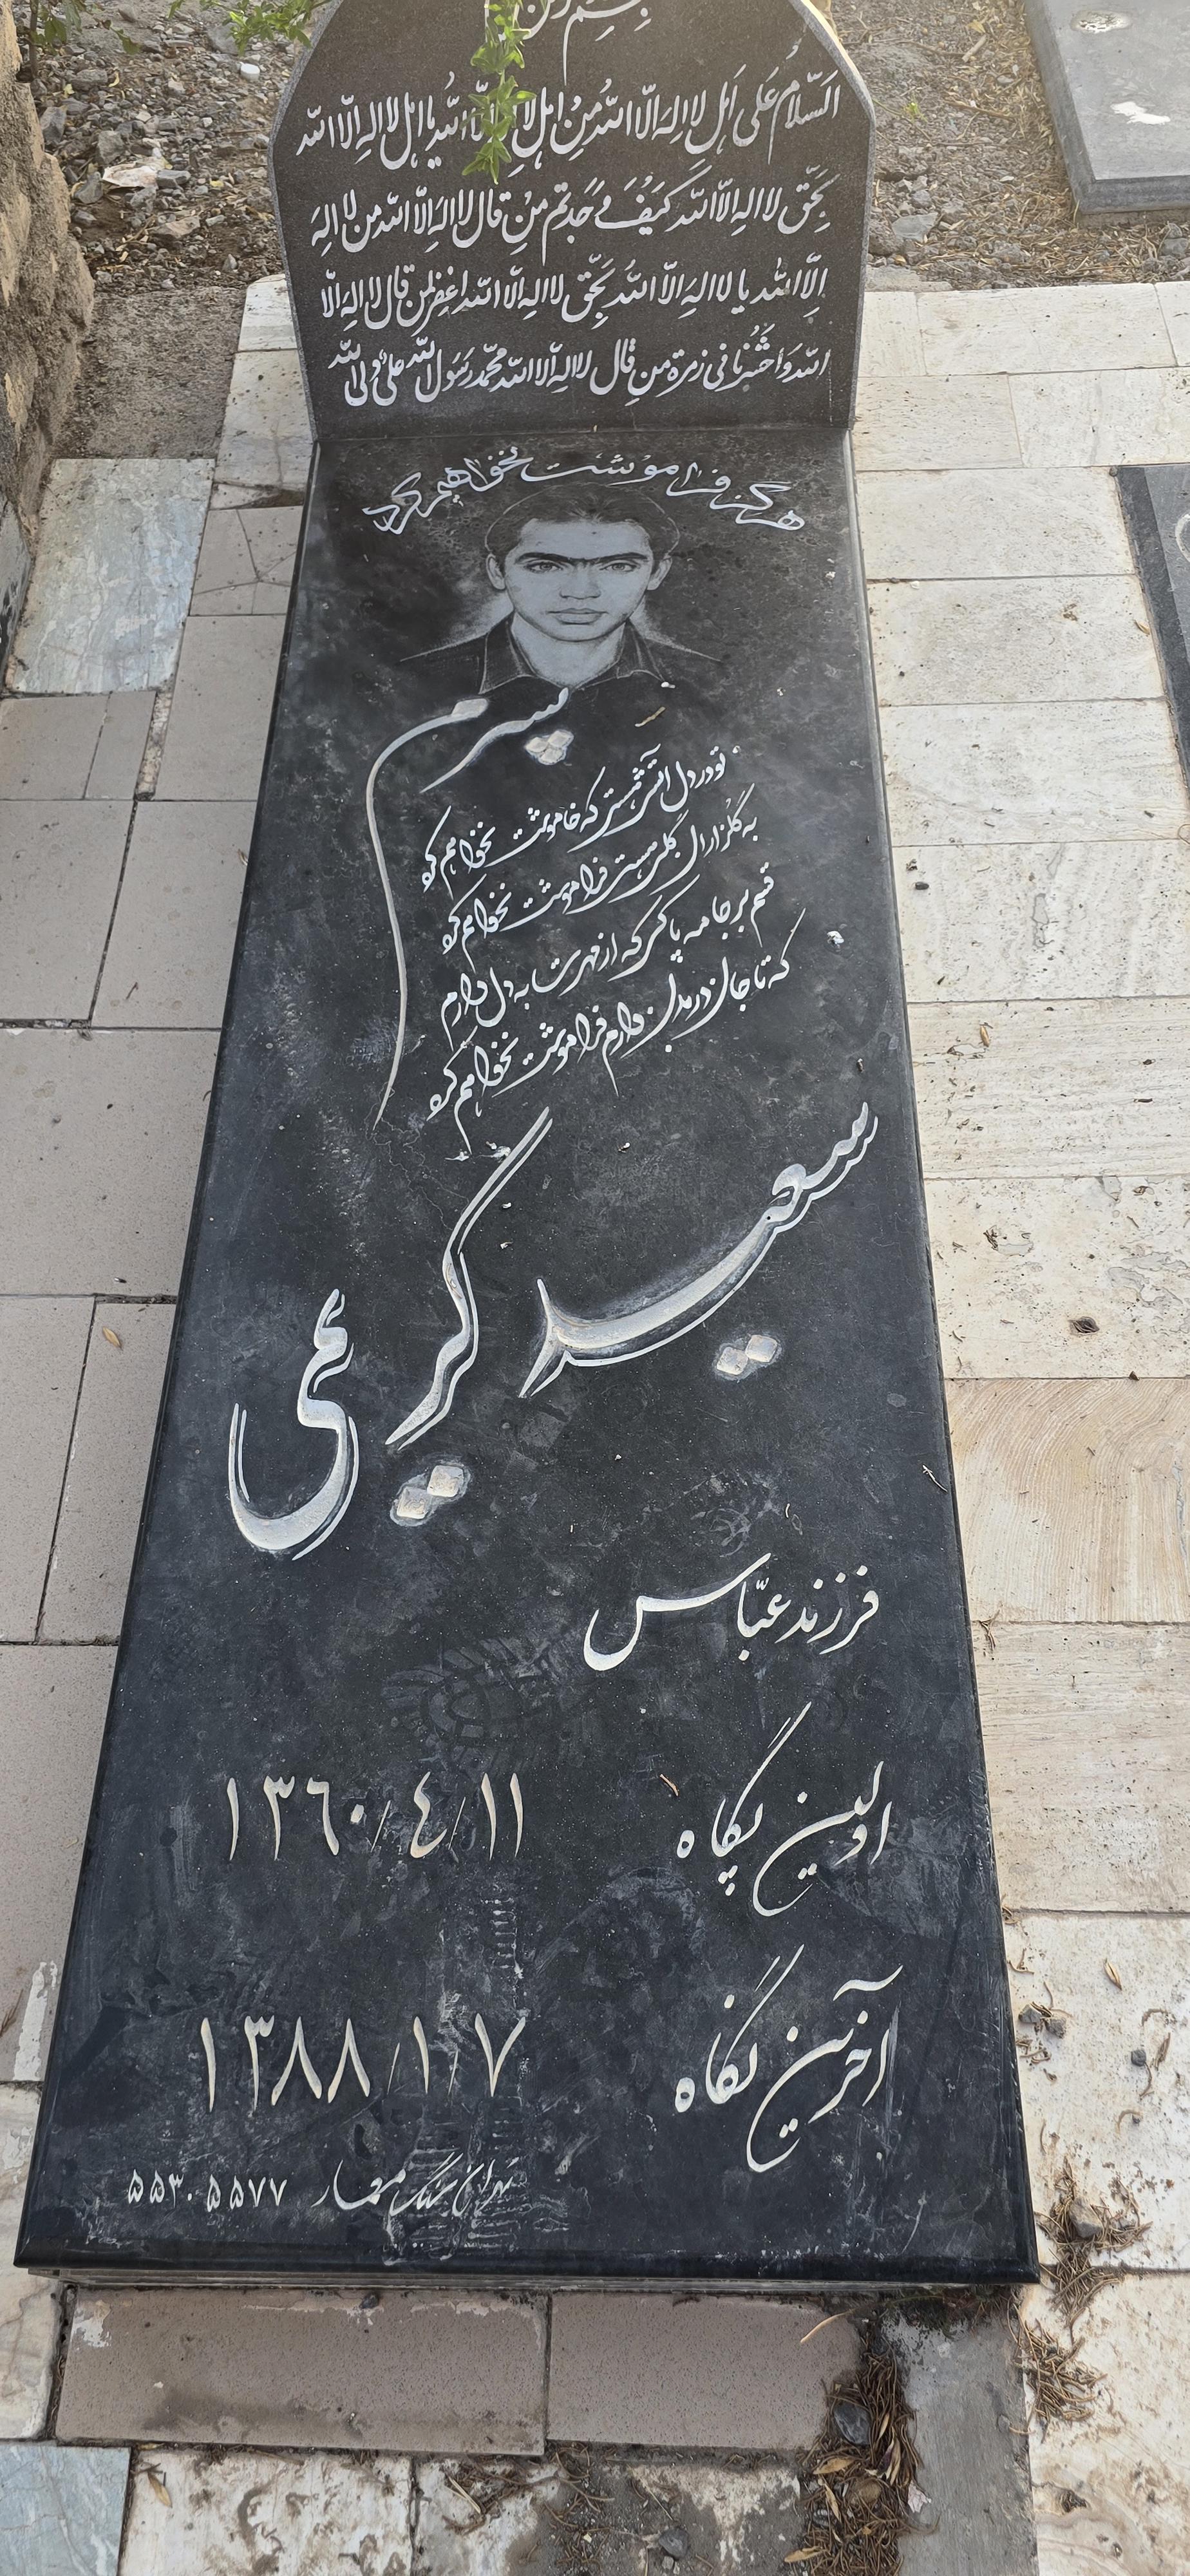 بسم
السَّلامُ عَلی اَهلِ لا اِلهَ اِلّا اللّه مِن اَهلِ لا اِلهَ اِلّا اللّه یا اَهلِ لا اِلهَ اِلّا اللّه
بِحَقِّ لا اِلهَ اِلّا اللّه کَیفَ وَجَدتُم مِن قالَ لا اِلهَ اِلّا اللّه مِن لا اِلهَ
اِلّا اللّه یا لا اِلهَ اِلّا اللّه بِحَقِّ لا اِلهَ اِلّا اللّه اغفِر لِمَن قالَ لا اِلهَ اِلّا
اللّه وَاحشُرنا فی زمرة مَن قالَ لا اِلهَ اِلّا اللّه محمّد رَسول اللّه علی ولی اللّه
هرگز فراموشت نخواهم کرد
پسرم
تو در دل آتشی هستی که خاموشت نخواهم کرد
به گلزارال گلی هستی فراموشت نخواهم کرد
قسم بر جامه پاکی که از مهرت به دل دارم
که تا جان در بدن دارم فراموشت نخواهم کرد
سعید کریمی
فرزند عبّاس
اولین پگاه ١٣٦٠/٤/١١
آخرین نگاه ١٣٨٨/١/٧
تهران سنگ معمار ۵۵۳۰۵۵۷۷